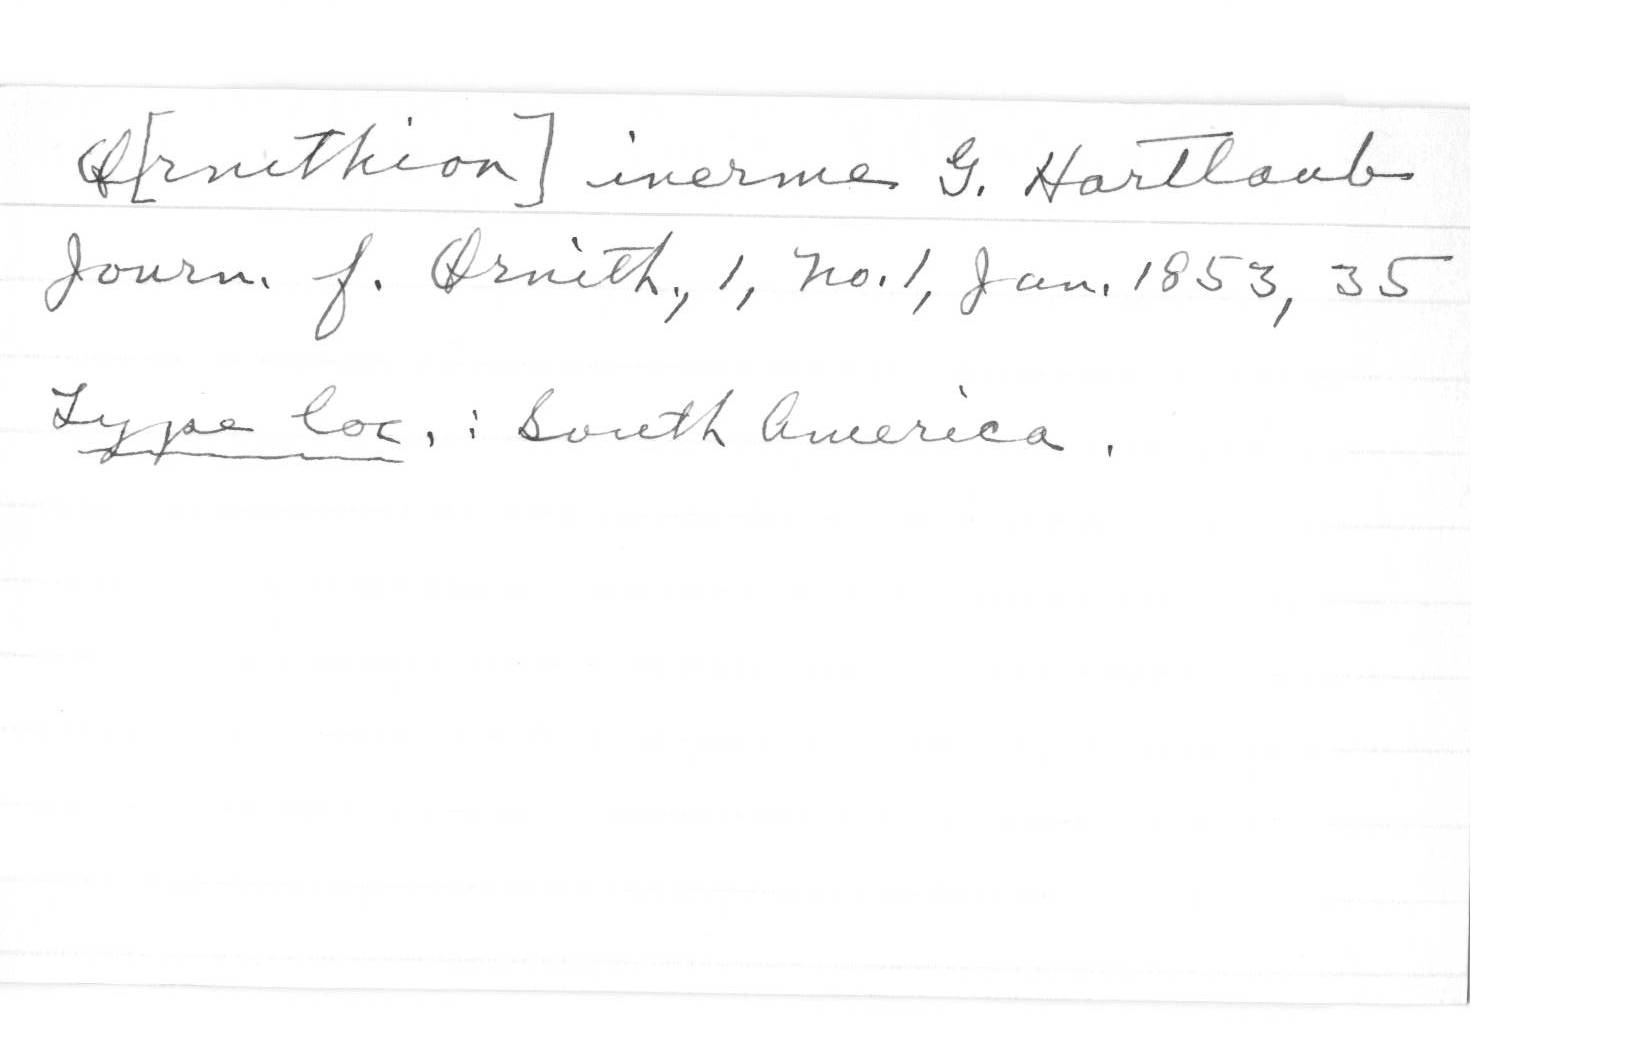 O[rnithion] inerme G. Hartlaub
Journ. f. Ornith., 1, no. 1, Jan. 1853, 35
Type loc. : South America.